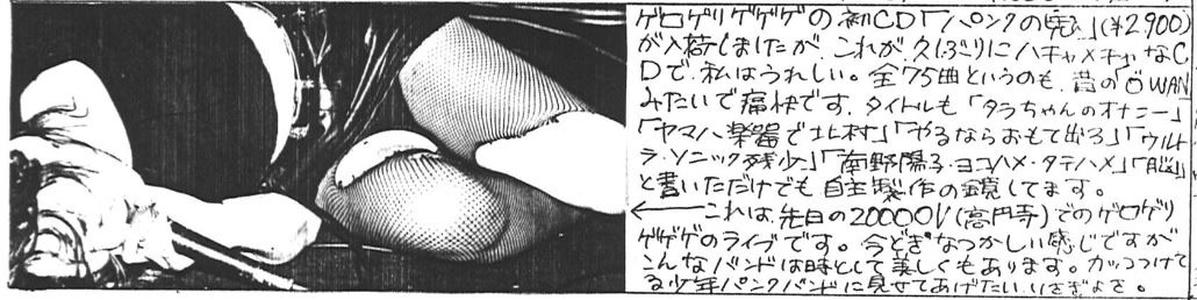 ゲロゲリゲゲゲの初CD「パンクの鬼」(¥2,900)
が入荷しましたが、これが久しぶりにハチャメチャなC
Dで、私はうれしい。全75曲というのも、昔のÖWAN
みたいで痛快です。タイトルも「タラちゃんのオナニー」
「ヤマハ楽器で北村」「やるならおもて出ろ」「ウルト
ラ・ソニック残少」「南野陽子・ヨコハメ・タテハメ」「脳」
と書いただけでも自主製作の鏡してます。
これは、先日の20000V(高円寺)でのゲロゲリ
ゲゲゲのライブです。今どきなつかしい感じですが
こんなバンドは時として美しくもあります。カッコつけて
る少年パンクバンドに見せてあげたいいさぎよさ。